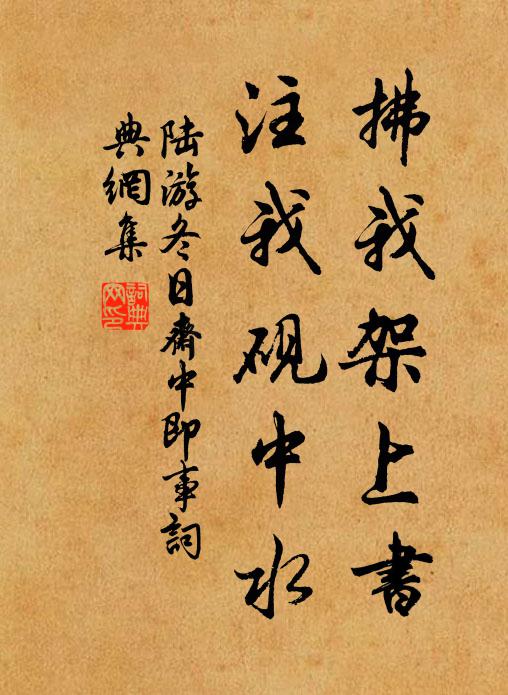 拂我架上書
注我硯中水
陸游冬日齋中即事詞
典網集
詞典網印